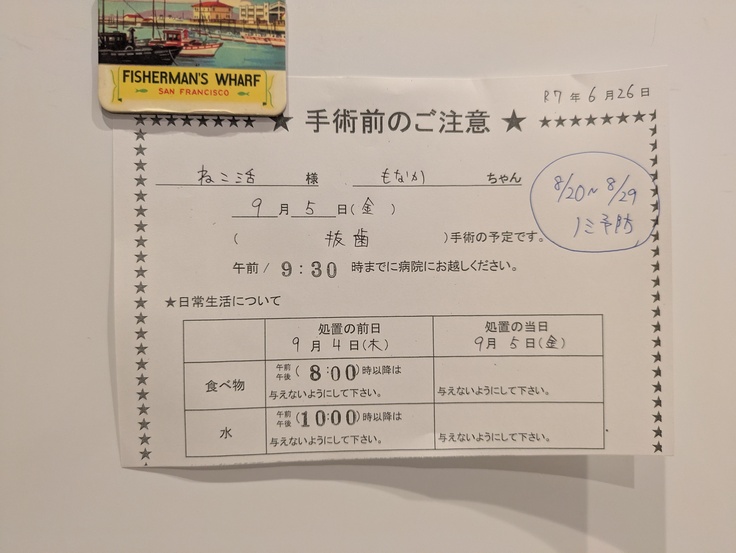 FISHERMAN'S WHARF
SAN FRANCISCO
R7年6月26日
★★★★★★★★ ★ 手術前のご注意 ★ ★★★★★★★★
ねこ活 様 もなか ちゃん
9月5日(金)
(抜歯)手術の予定です。
8/20~8/29
に予防
午前/9:30 時までに病院にお越しください。
★日常生活について
処置の前日 処置の当日
9月4日(木) 9月5日(金)
食べ物 午前 午後 (8:00)時以降は 与えないようにして下さい。 与えないようにして下さい。
水 午前 午後 (10:00)時以降は 与えないようにして下さい。 与えないようにして下さい。